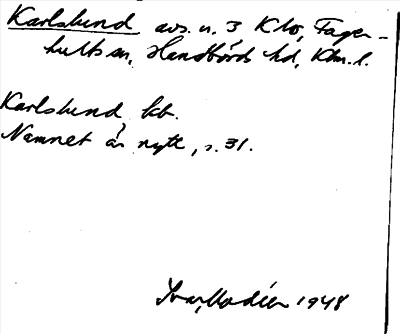 Karlslund avs. u. 3 Klo, Fager-
hults sn, Handbörds hd, Klm. l.
Karlslund kb.
Namnet är nytt, s. 31.
Ivar Modéer 1948